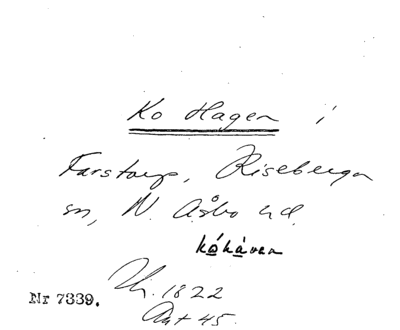 Ko Hagen i
Farstorp, Riseberga
sn, N. Åsbo hd.
kóháven
Nr 7339.
1822
Ant 45.